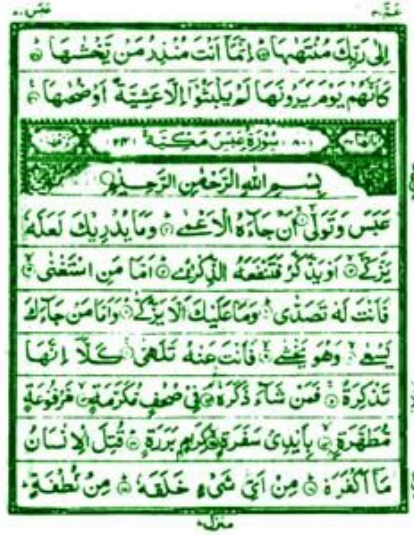 عبس ٨٠
عمّ ٣٠
اِلٰى رَبِّكَ مُنْتَهٰىهَا ؕ اِنَّمَاۤ اَنْتَ مُنْذِرُ مَنْ يَّخْشٰىهَا ؕ
كَاَنَّهُمْ يَوْمَ يَرَوْنَهَا لَمْ يَلْبَثُوْۤا اِلَّا عَشِيَّةً اَوْ ضُحٰىهَا
(٨٠) سُوْرَةُ عَبَسَ مَكِّيَّةٌ (٢٤)
بِسْمِ اللّٰهِ الرَّحْمٰنِ الرَّحِيْمِ
عَبَسَ وَتَوَلّٰىۤ ۙ اَنْ جَآءَهُ الْاَعْمٰى ؕ وَمَا يُدْرِيْكَ لَعَلَّهٗ
يَزَّكّٰىۤ ۙ اَوْ يَذَّكَّرُ فَتَنْفَعَهُ الذِّكْرٰى ؕ اَمَّا مَنِ اسْتَغْنٰى ۙ
فَاَنْتَ لَهٗ تَصَدّٰى ؕ وَمَا عَلَيْكَ اَلَّا يَزَّكّٰى ؕ وَاَمَّا مَنْ جَآءَكَ
يَسْعٰى ۙ وَهُوَ يَخْشٰى ۙ فَاَنْتَ عَنْهُ تَلَهّٰى ۚ كَلَّاۤ اِنَّهَا
تَذْكِرَةٌ ۚ فَمَنْ شَآءَ ذَكَرَهٗ ۘ فِيْ صُحُفٍ مُّكَرَّمَةٍ ۙ مَّرْفُوْعَةٍ
مُّطَهَّرَةٍۭ ۙ بِاَيْدِيْ سَفَرَةٍ ۙ كِرَامٍۭ بَرَرَةٍ ؕ قُتِلَ الْاِنْسَانُ
مَاۤ اَكْفَرَهٗ ؕ مِنْ اَيِّ شَيْءٍ خَلَقَهٗ ؕ مِنْ نُّطْفَةٍ ؕ
منزل